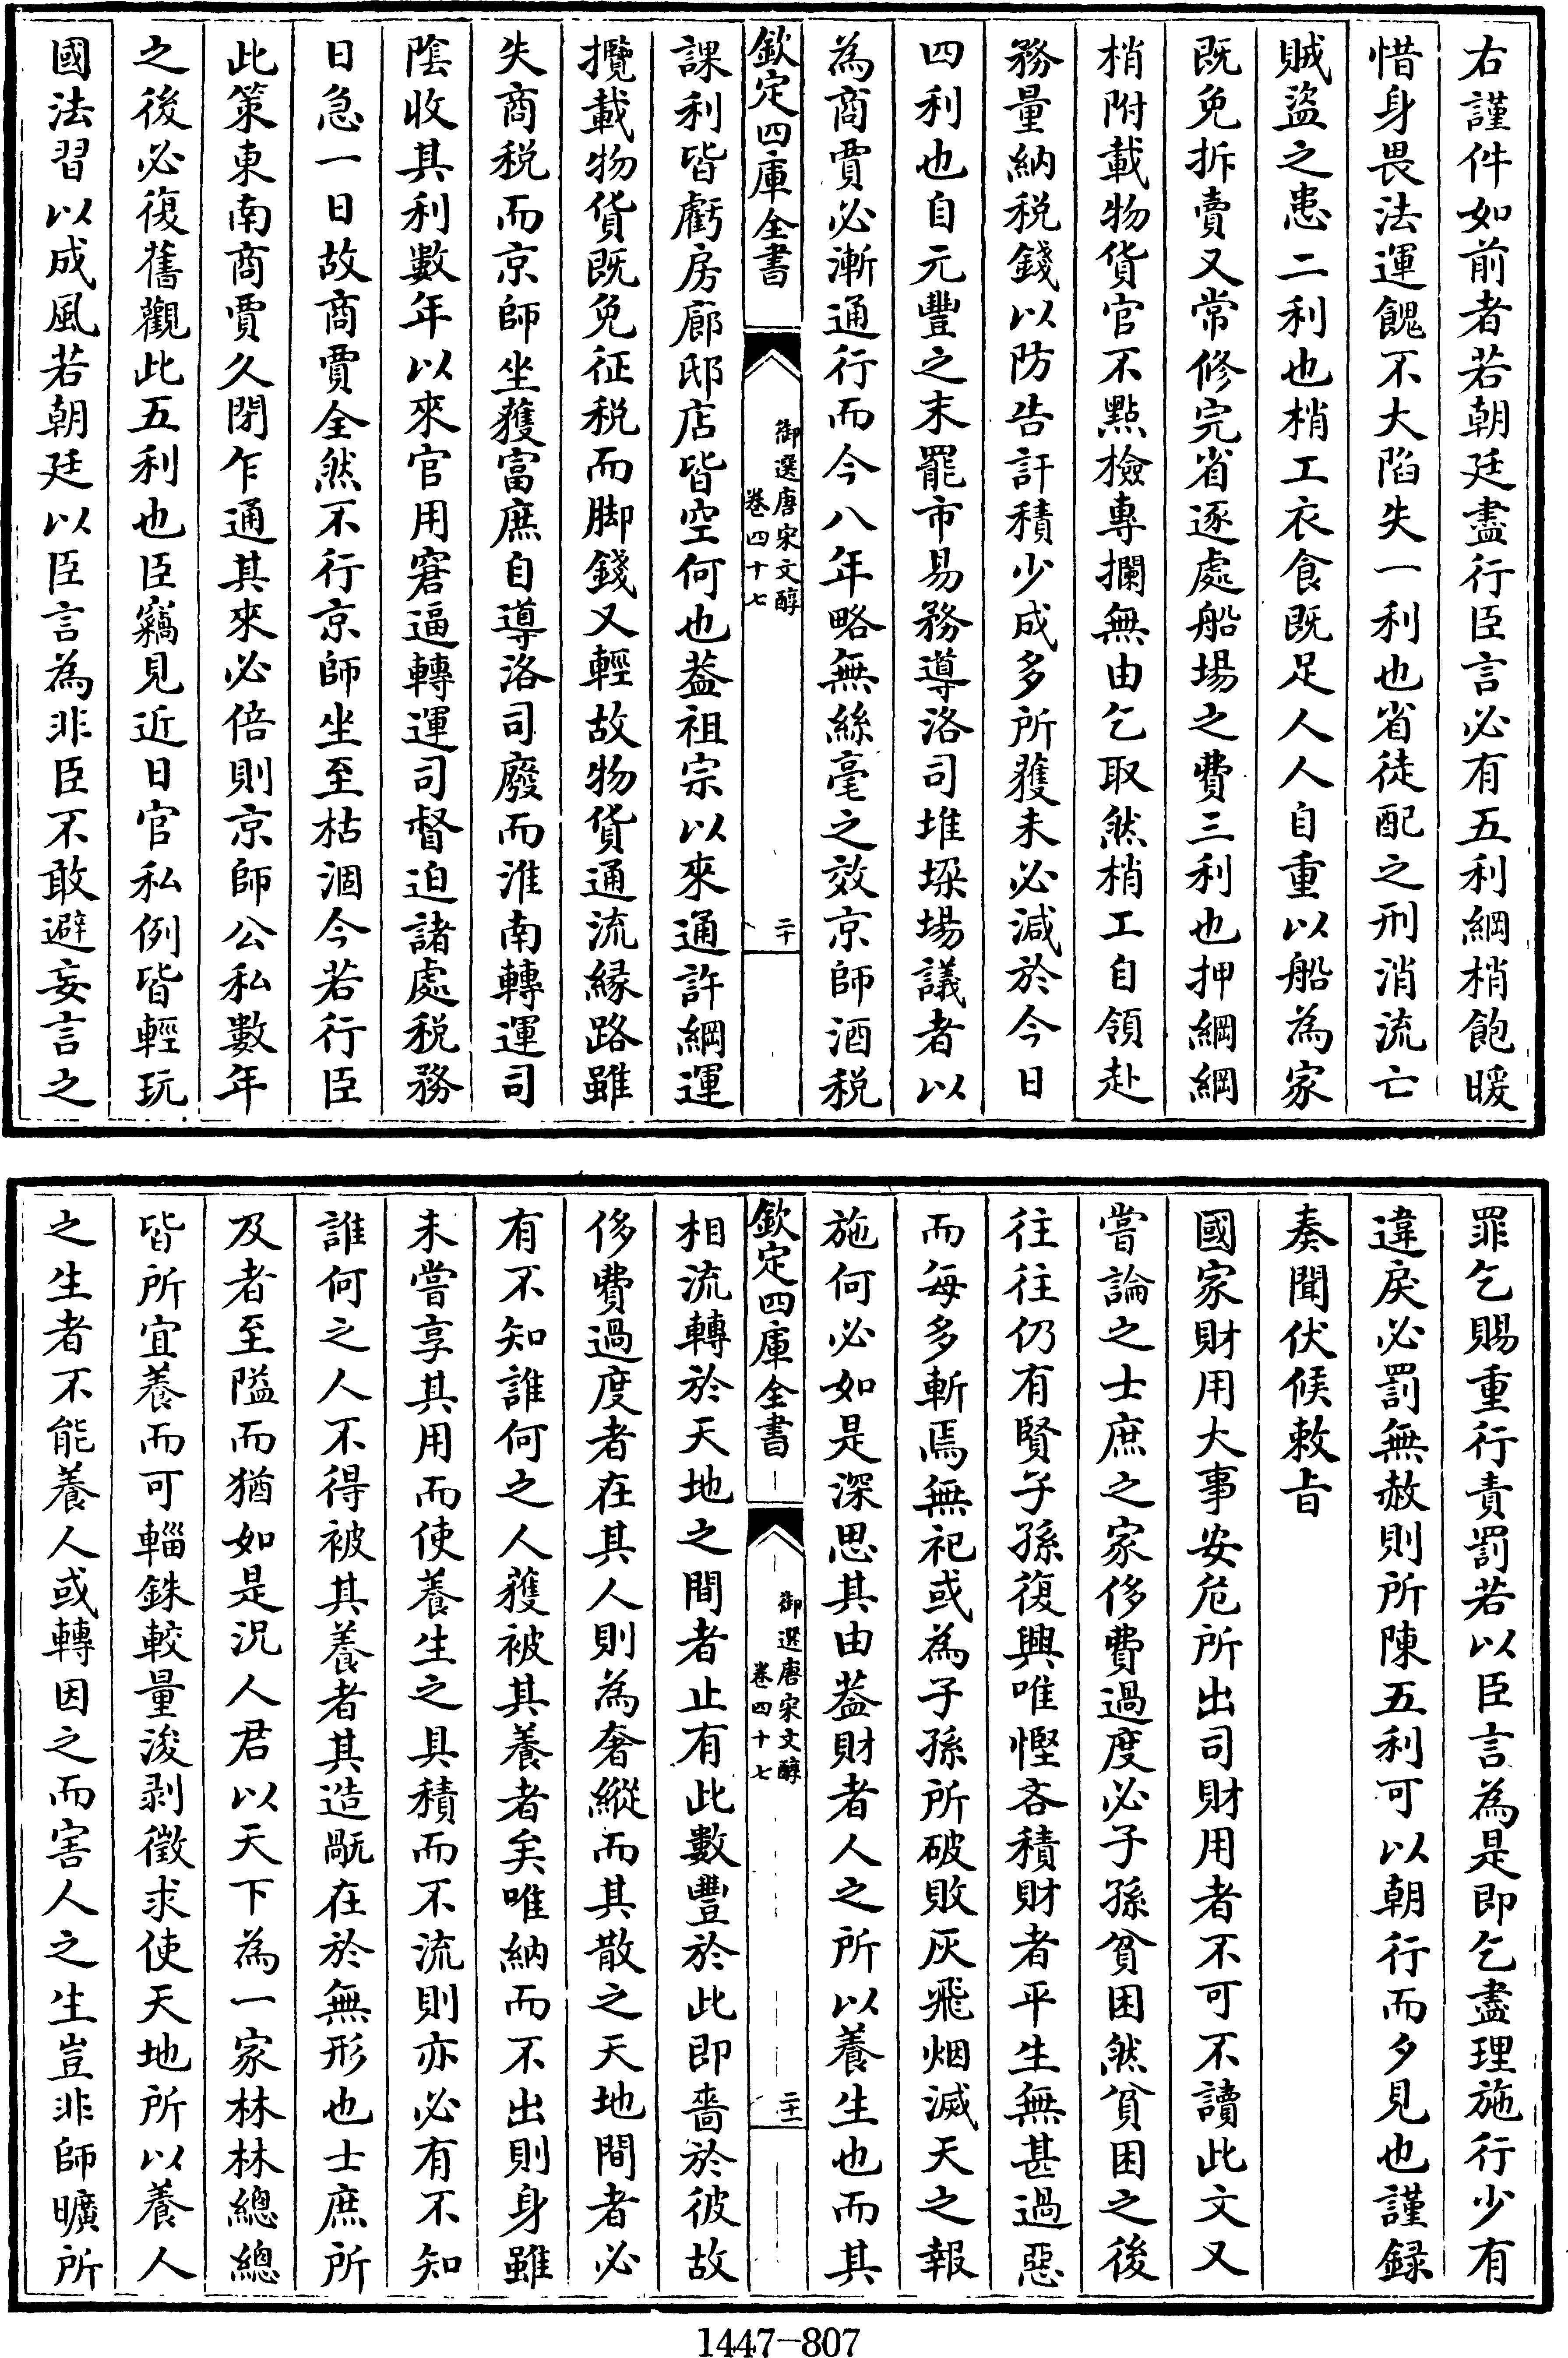 右謹件如前者若朝廷盡行臣言必有五利綱梢飽暖
惜身畏法運餽不大陷失一利也省徒配之刑消流亡
賊盜之患二利也梢工衣食既足人人自重以船為家
既免拆賣又常修完省逐處船場之費三利也押綱綱
梢附載物貨官不點檢專攔無由乞取然梢工自領赴
務量納税錢以防告訐積少成多所獲未必減於今日
四利也自元豐之末罷市易務導洛司堆垜場議者以
為商賈必漸通行而今八年略無絲毫之效京師酒税
欽定四庫全書
御選唐宋文醇
卷四十七
二十
課利皆虧房廊邸店皆空何也葢祖宗以來通許綱運
攬載物貨既免征税而脚錢又輕故物貨通流縁路雖
失商税而京師坐獲富庶自導洛司廢而淮南轉運司
陰收其利數年以來官用窘逼轉運司督迫諸處税務
日急一日故商賈全然不行京師坐至枯涸今若行臣
此策東南商賈久閉乍通其來必倍則京師公私數年
之後必復舊觀此五利也臣竊見近日官私例皆輕玩
國法習以成風若朝廷以臣言為非臣不敢避妄言之
罪乞賜重行責罰若以臣言為是即乞盡理施行少有
違戾必罰無赦則所陳五利可以朝行而夕見也謹録
奏聞伏候敕旨
國家財用大事安危所出司財用者不可不讀此文又
嘗論之士庶之家侈費過度必子孫貧困然貧困之後
往往仍有賢子孫復興唯慳吝積財者平生無甚過惡
而每多斬焉無祀或為子孫所破敗灰飛烟滅天之報
施何必如是深思其由葢財者人之所以養生也而其
欽定四庫全書
御選唐宋文醇
卷四十七
二十一
相流轉於天地之間者止有此數豐於此即嗇於彼故
侈費過度者在其人則為奢縱而其散之天地間者必
有不知誰何之人獲被其養者矣唯納而不出則身雖
未嘗享其用而使養生之具積而不流則亦必有不知
誰何之人不得被其養者其造㪇在於無形也士庶所
及者至隘而猶如是況人君以天下為一家林林總總
皆所宜養而可輜銖較量浚剥徵求使天地所以養人
之生者不能養人或轉因之而害人之生豈非師曠所
1447-807